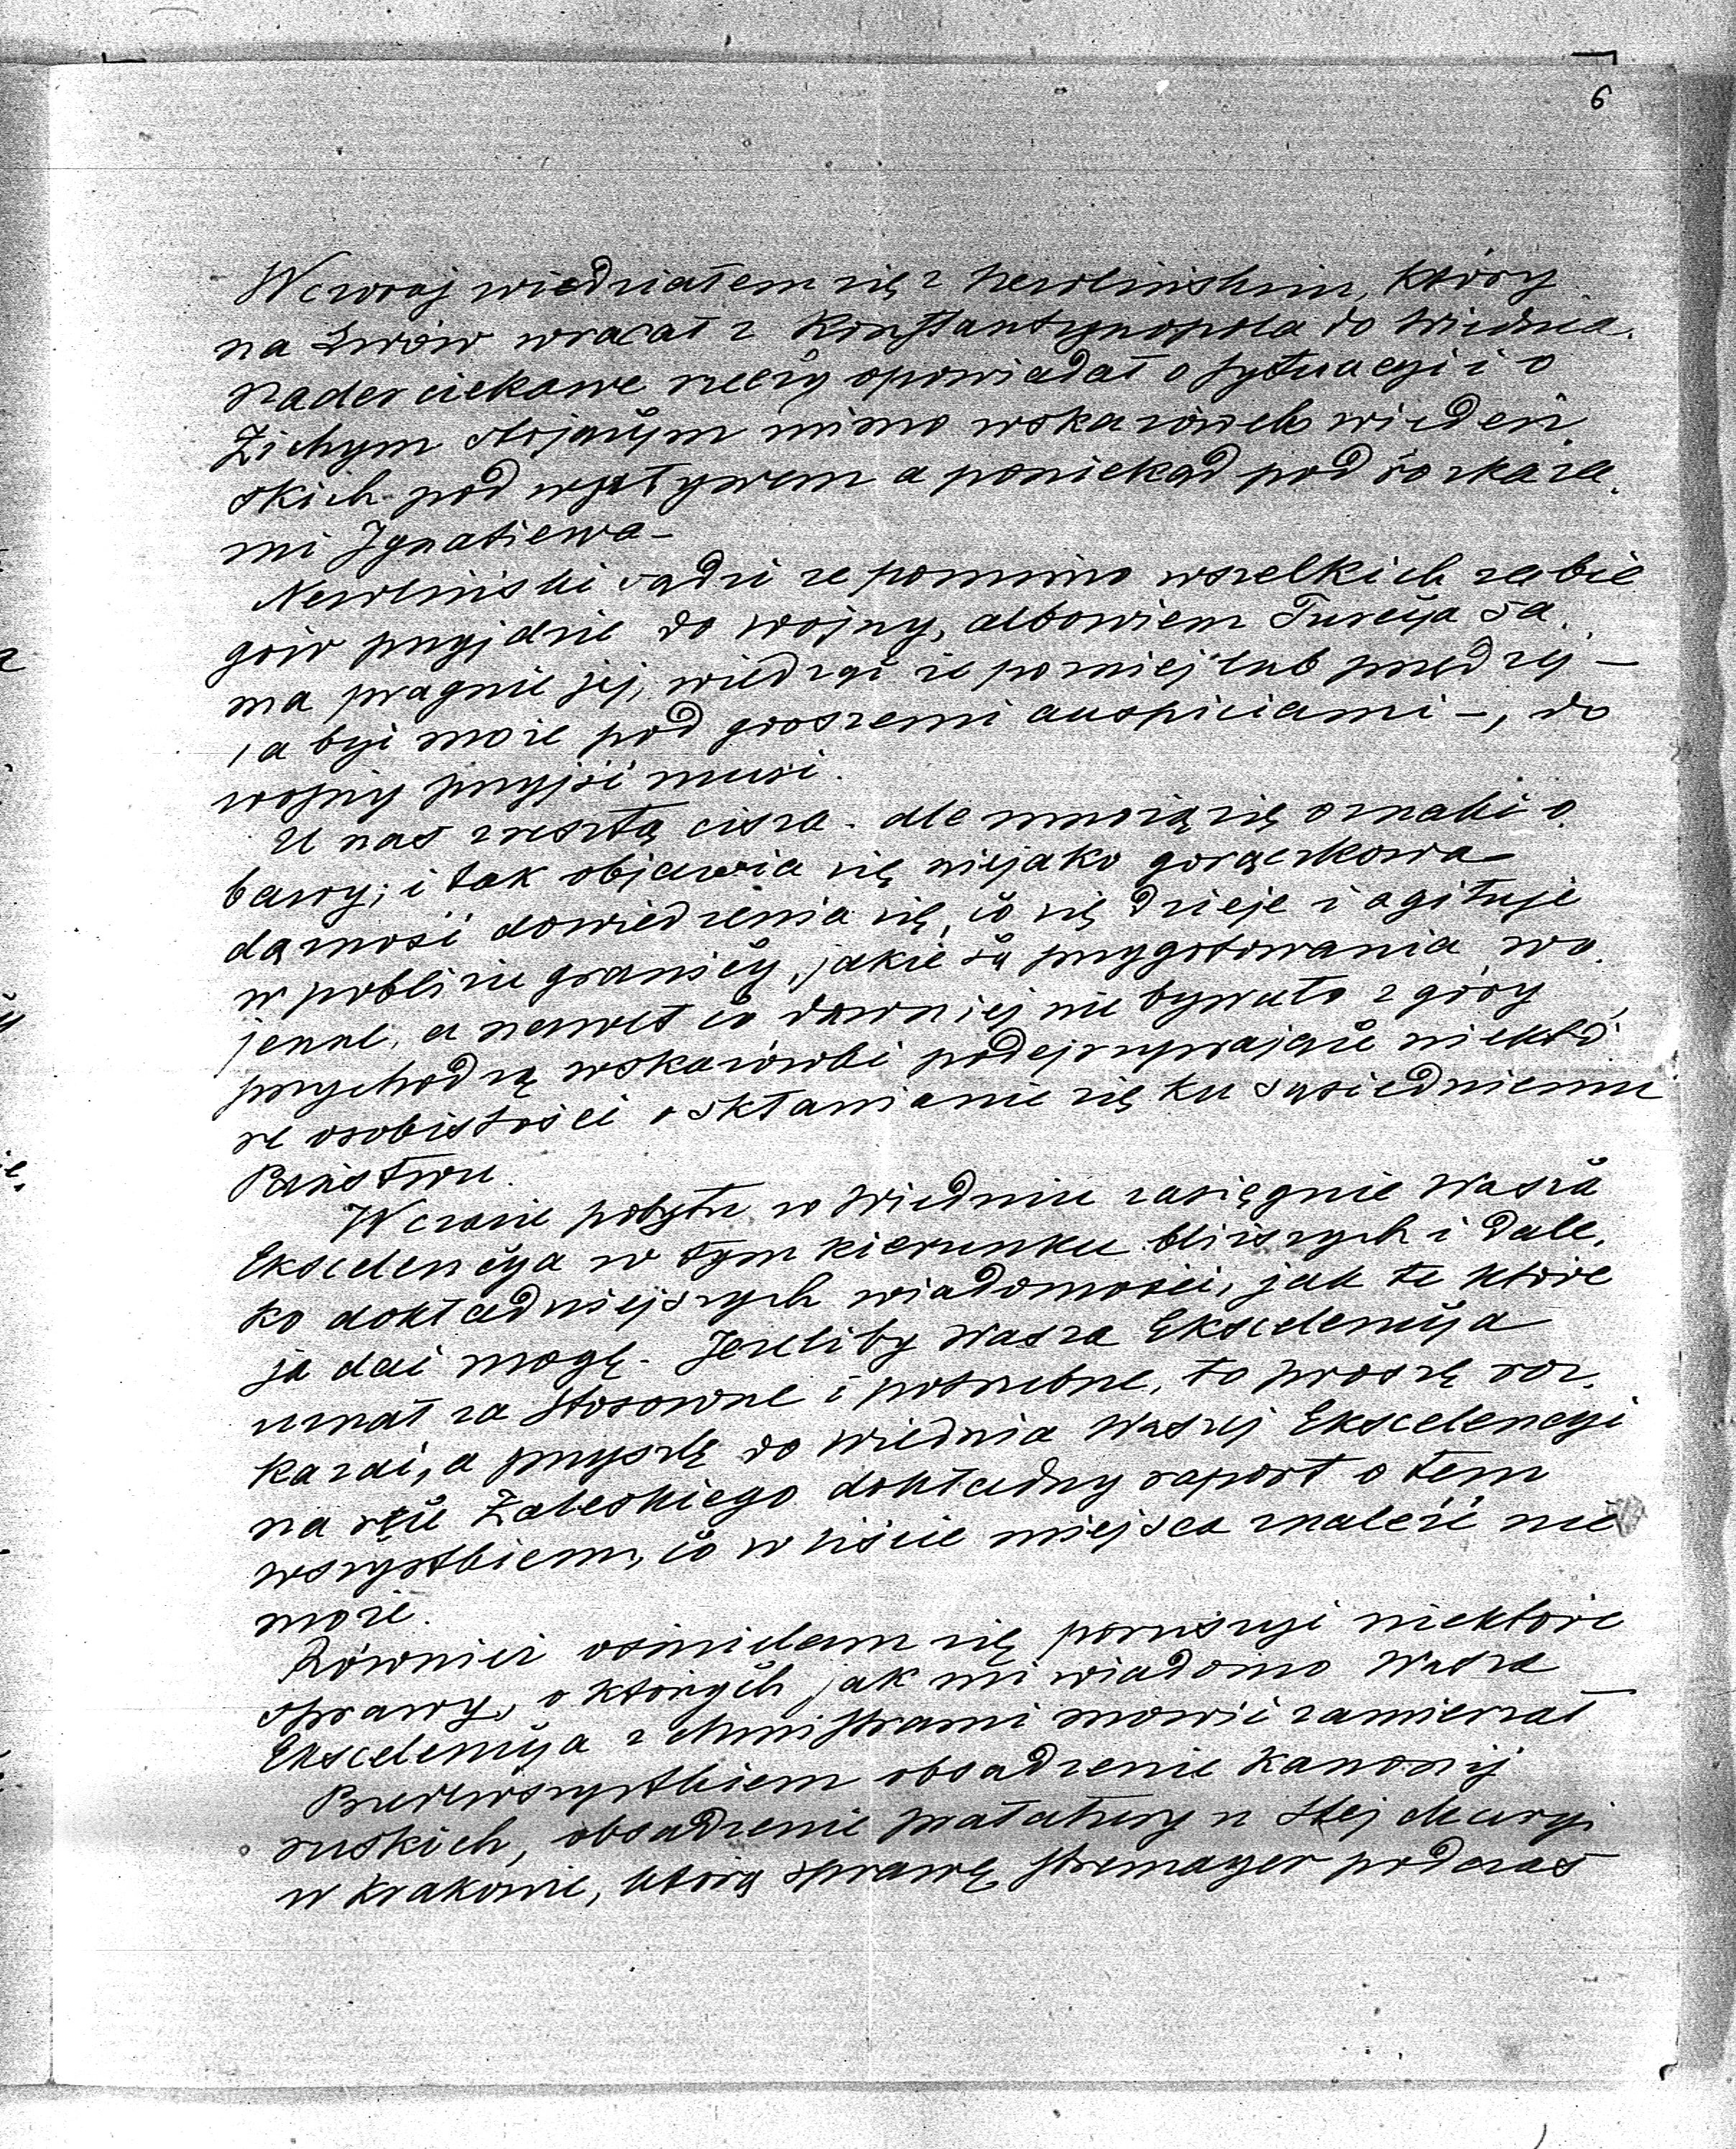 6
Wczoraj wiedziałem się z Newlinskim, który
na Lwów wracał z Konstantynopola do Wiednia.
Nader ciekawe rzeczy opowiadał o sytuacyi i o
Zichym stojącym mimo wskazówek wiedeń
skich pod wpływem a poniekąd pod rozkaza
mi Ignatiewa –
Newlinski sądzi że pomimo wszelkich zabie
gów przyjdzie do wojny, albowiem Turcya sa
ma pragnie jej, wiedząc że pozniej lub prędzej –
a być może pod gorszemi auspiciami –, do
wojny przyjść musi.
U nas zresztą cisza. Ale mnożą się oznaki o
bawy; i tak objawia się niejako gorączkowa
dążność dowiedzenia się, co się dzieje i agituje
w pobliżu granicy, jakie są przygotowania wo
jenne, a nawet co dawniej nie bywało z góry
przychodzą wskazówki podejrzywające niektó
re osobistości o skłanianie się ku sąsiedniemu
Państwu.
W czasie pobytu w Wiedniu zasięgnie Wasza
Ekscelencya w tym kierunku bliższych i dale
ko dokładniejszych wiadomości, jak te które
ja dać mogę. Jeżeliby Wasza Ekscelencya
uznał za stosowne i potrzebne, to proszę roz
kazać, a przyszlę do Wiednia Waszej Ekscelencyi
na ręce Zaleskiego dokładny raport o tem
wszystkiem, co w liście miejsca znaleźć nie
może.
Również ośmielam się poruszyć niektóre
sprawy, o których jak mi wiadomo Wasza
Ekscelencya z Ministrami mówić zamierzał
Przedewszystkiem obsadzenie kanonij
ruskich, obsadzenie prałatury u Stej Maryi
w Krakowie, którą sprawę Stremayer podczas